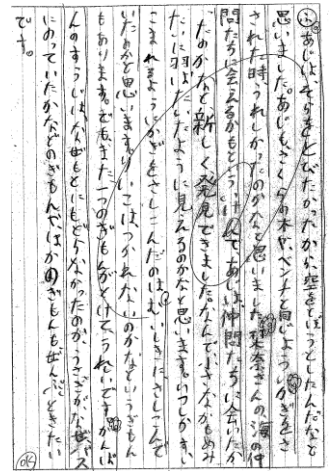 あじは、そらをとびたかったから、空をとぼうとしたんだなと
思いました。あじも、さくらの木や、ベンチと同じようにかぎをさ
された時、うれしかったのかなと思いました。菜奈さんの、海の仲
間たちに会えるかもという
であじは、仲間たちに会ったか
ったのかなと新しく発見できました。なんで、さかなかもめみ
たいに羽ばたいたように見えるのかなと思います。いつしかすい
こまれるようにかぎをさしこんだのは、むいしきにさしこんで
いたのかと思います。りいこは、つかれないのかなというぎもん
もあります。でも、また一つのぎもんがとけてうれしいです。
んのすうじは、なぜもとにもどらなかったのか、うさぎが、なぜバス
にのっていたかなどのぎもんで、ほかのぎもんもぜんぶときたい
です。